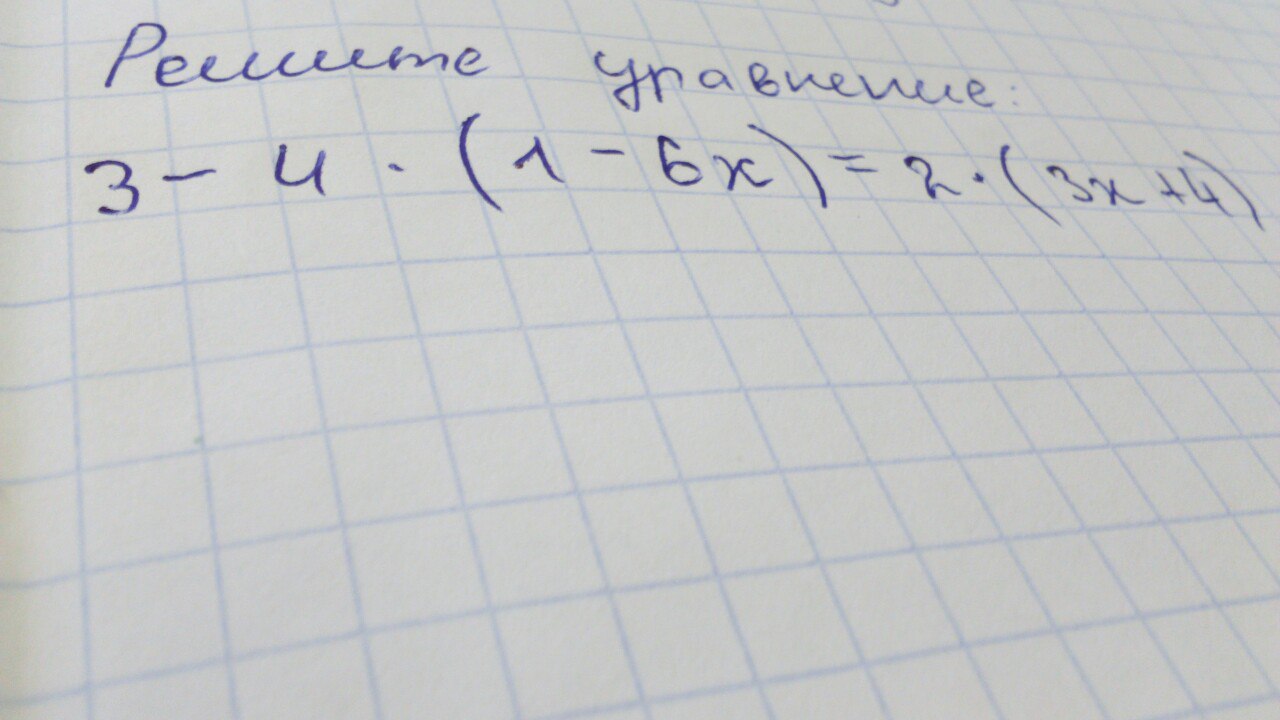 Решите уравнение:
3 - 4 · (1 - 6x) = 2 · (3x + 4)